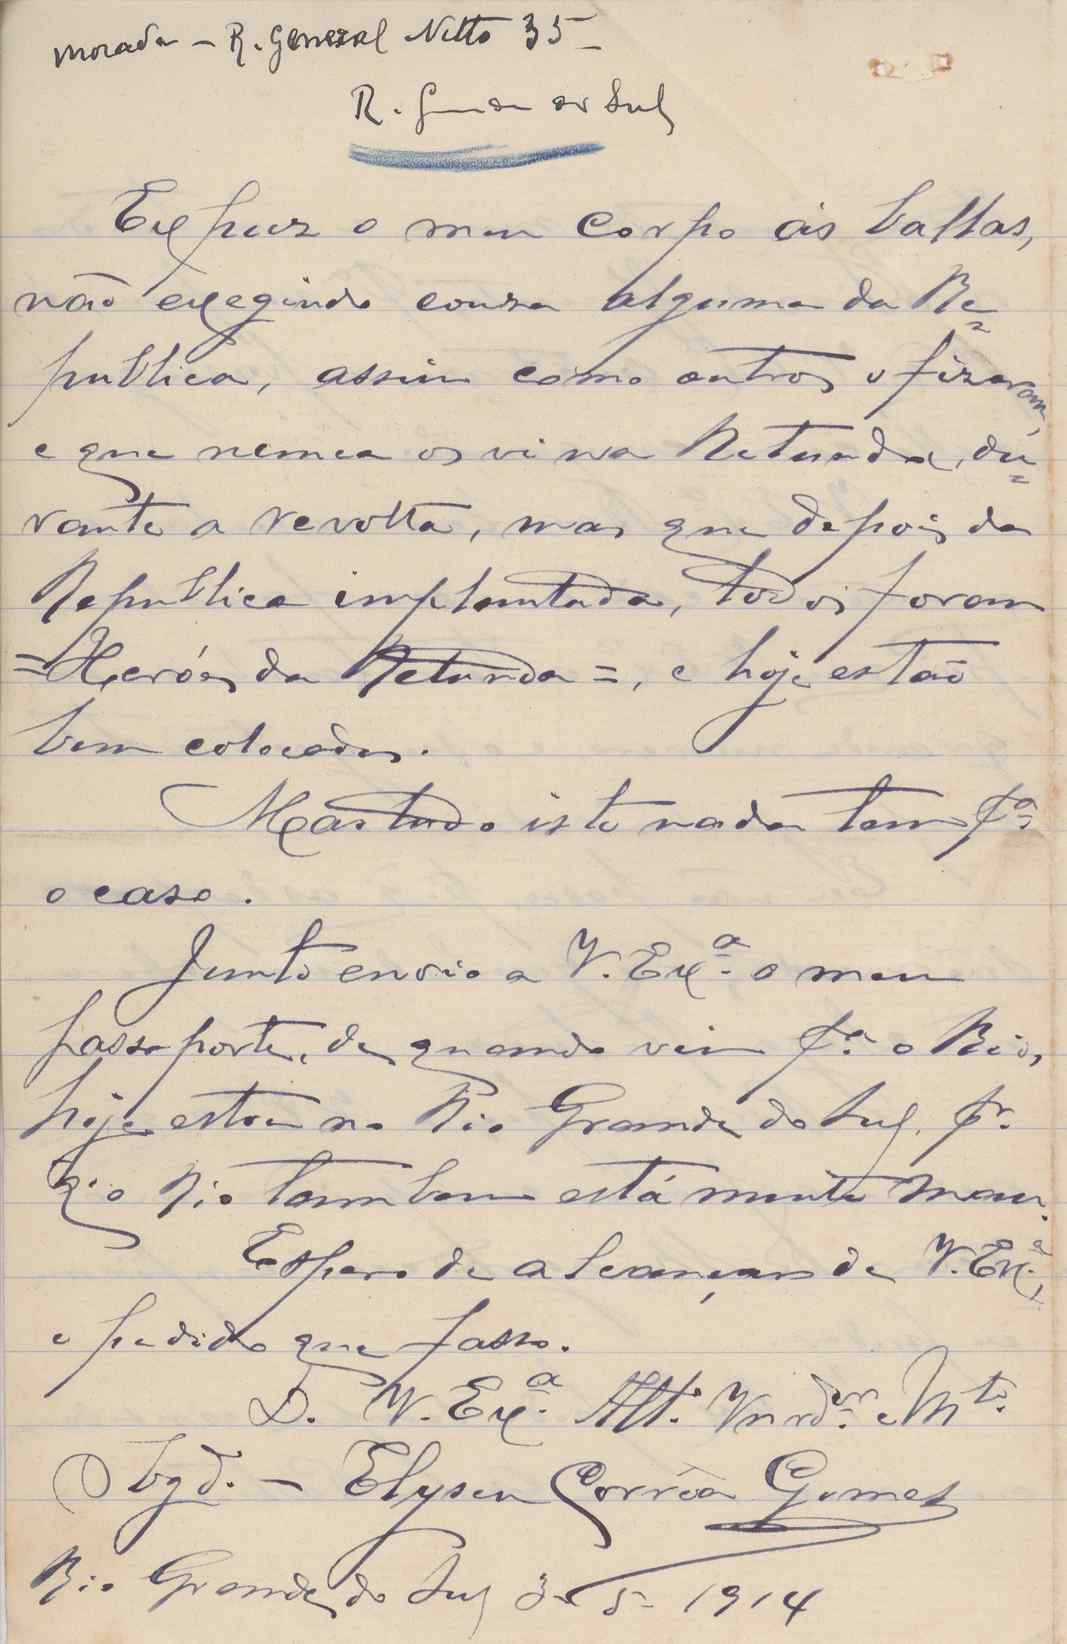 morada - R. General Netto 35 -
R. Grande do Sul
Expuz o meu corpo ás ballas,
não exegindo couza alguma da Re=
publica, assim como outros o fizeram,
e que nunca os vi na Rotunda, du=
rante a revolta, mas que depois da
Republica implantada, todos foram
=Heróes da Rotunda=, e hoje estão
bem colocados.
Mas tudo isto nada tem pª
o caso.
Junto envio a V. Exª. o meu
passaporte, de quando vim pª. o Rio,
hoje estou no Rio Grande do Sul, pr.
q. o Rio tambem está muito mau.
Espero de alcançar de V. Exª.,
o pedido que fasso.
D. V. Exª. Att. Vnrdor. e Mto.
Obgd. - Elyseu Corrêa Gomes
Rio Grande do Sul 3-5-1914